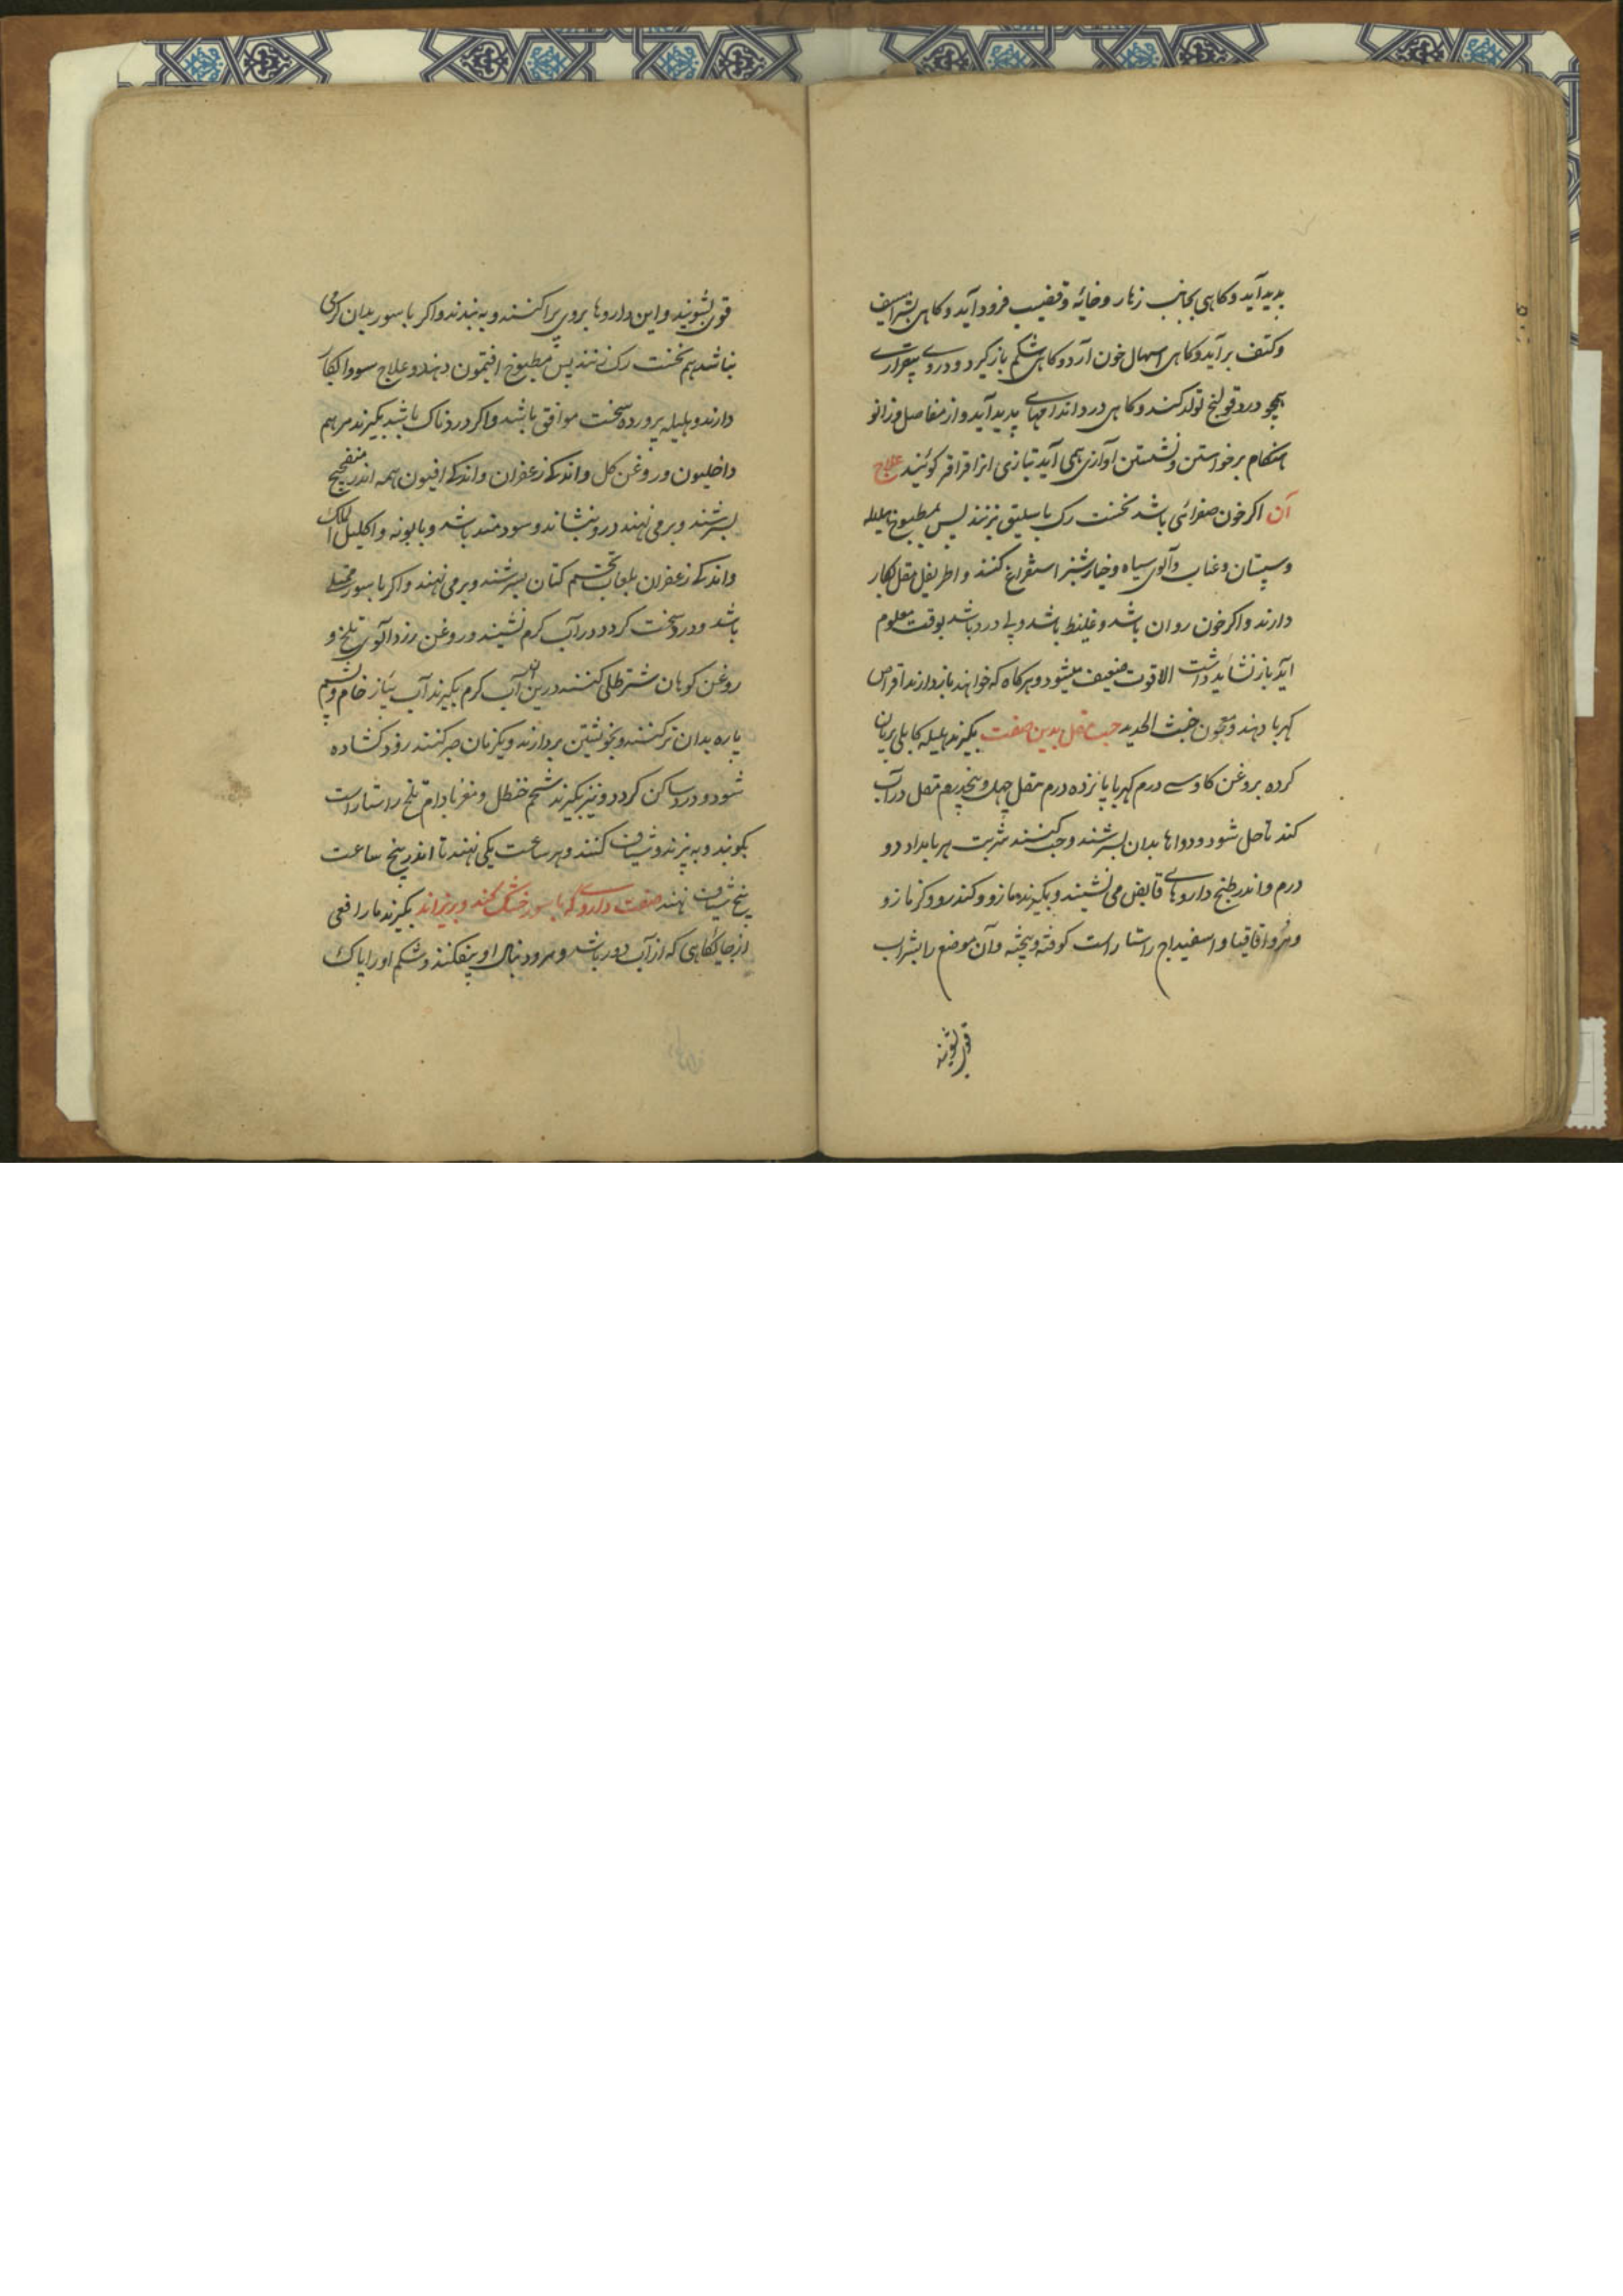 پدید آید و کاهی بجانب زهار و خائه و قضیب فرود آید و کاهی بشراسیف
و کتف بر آید و کاهی اسهال خون آرد و کاهی شکم باز کیرد و دردی بیقراری
همچو درد قولنج تولد کند و کاهی درد اندامهای پدید آید و از مفاصل و زانو
هنکام برخواستن و نشستن آوازی همی آید بتازی انرا قراقر کوئیند علاج
آن اکر خون صفرائی باشد نخست رک باسلیق بزنند پس بمطبوخ هلیله
و سپستان و عناب و آلوی سیاه و خیارشنبر استفراغ کنند و اطریفل مقل بکار
دارند و اکر خون روان باشد و غلیظ باشد و بی درد باشد بوقت معلوم
آید باز نشاید داشت الا قوت ضعیف میشود و هر کاه که خواهند باز دارند اقراص
کهربا دهند و معجون خبث الحدید حب مقل بدین صفت بکیرند هلیله کابلی بریان
کرده بروغن کاو سی درم کهربا پانزده درم مقل چهل و پنجدرم مقل در آب
کند تا حل شود و دواها بدان بسرشند و حب کنند شربت هر بامداد دو
درم و اندر طبخ داروهای قابض می نشیند و بکیرند مازو و کندر و و کزمازو
و اقاقیا و اسفیداج راستا راست کوفته و بیخته و آن موضع را بشراب
قوی بشویند
قوی بشویند و این داروها بروی پراکنند و به بندند و اکر باسور بدان کرمی
نباشد هم نخست رک زنند پس مطبوخ افتیمون دهند و علاج سودا بکار
دارند و هلیله پرورده سخت موافق باشد و اکر دردناک باشد بکیرند مرهم
داخلیون و روغن کل و اندکی زعفران و اندکی افیون همه اندر میفختج
بسرشند و بر می نهند درد بنشاند و سودمند باشد و بابونه و اکلیل الملک
و اندکی زعفران بلعاب تخم کتان بسرشند و بر می نهند و اکر باسور
باشد و درد سخت کردد در آب کرم نشیند و روغن زردآلوی تلخ و
روغن کوهان شتر طلی کنند درین آب کرم بکیرند آب پیاز خام و پشم
پاره بدان تر کنند و بخویشتن بردارند و یکزمان صبر کنند زود کشاده
شود و درد ساکن کردد و نیز بکیرند شحم حنظل و مغز بادام تلخ راستا راست
بکوبند و به پزند و شیاف کنند و هر ساعت یکی نهند تا اندر پنج ساعت
پنج شیاف نهند صفت داروی که باسور خشک کند و بریزاند بکیرند مار افعی
از جایکاهی که از آب دور باشد و سر و دنبال او بیفکنند و شکم او را پاک